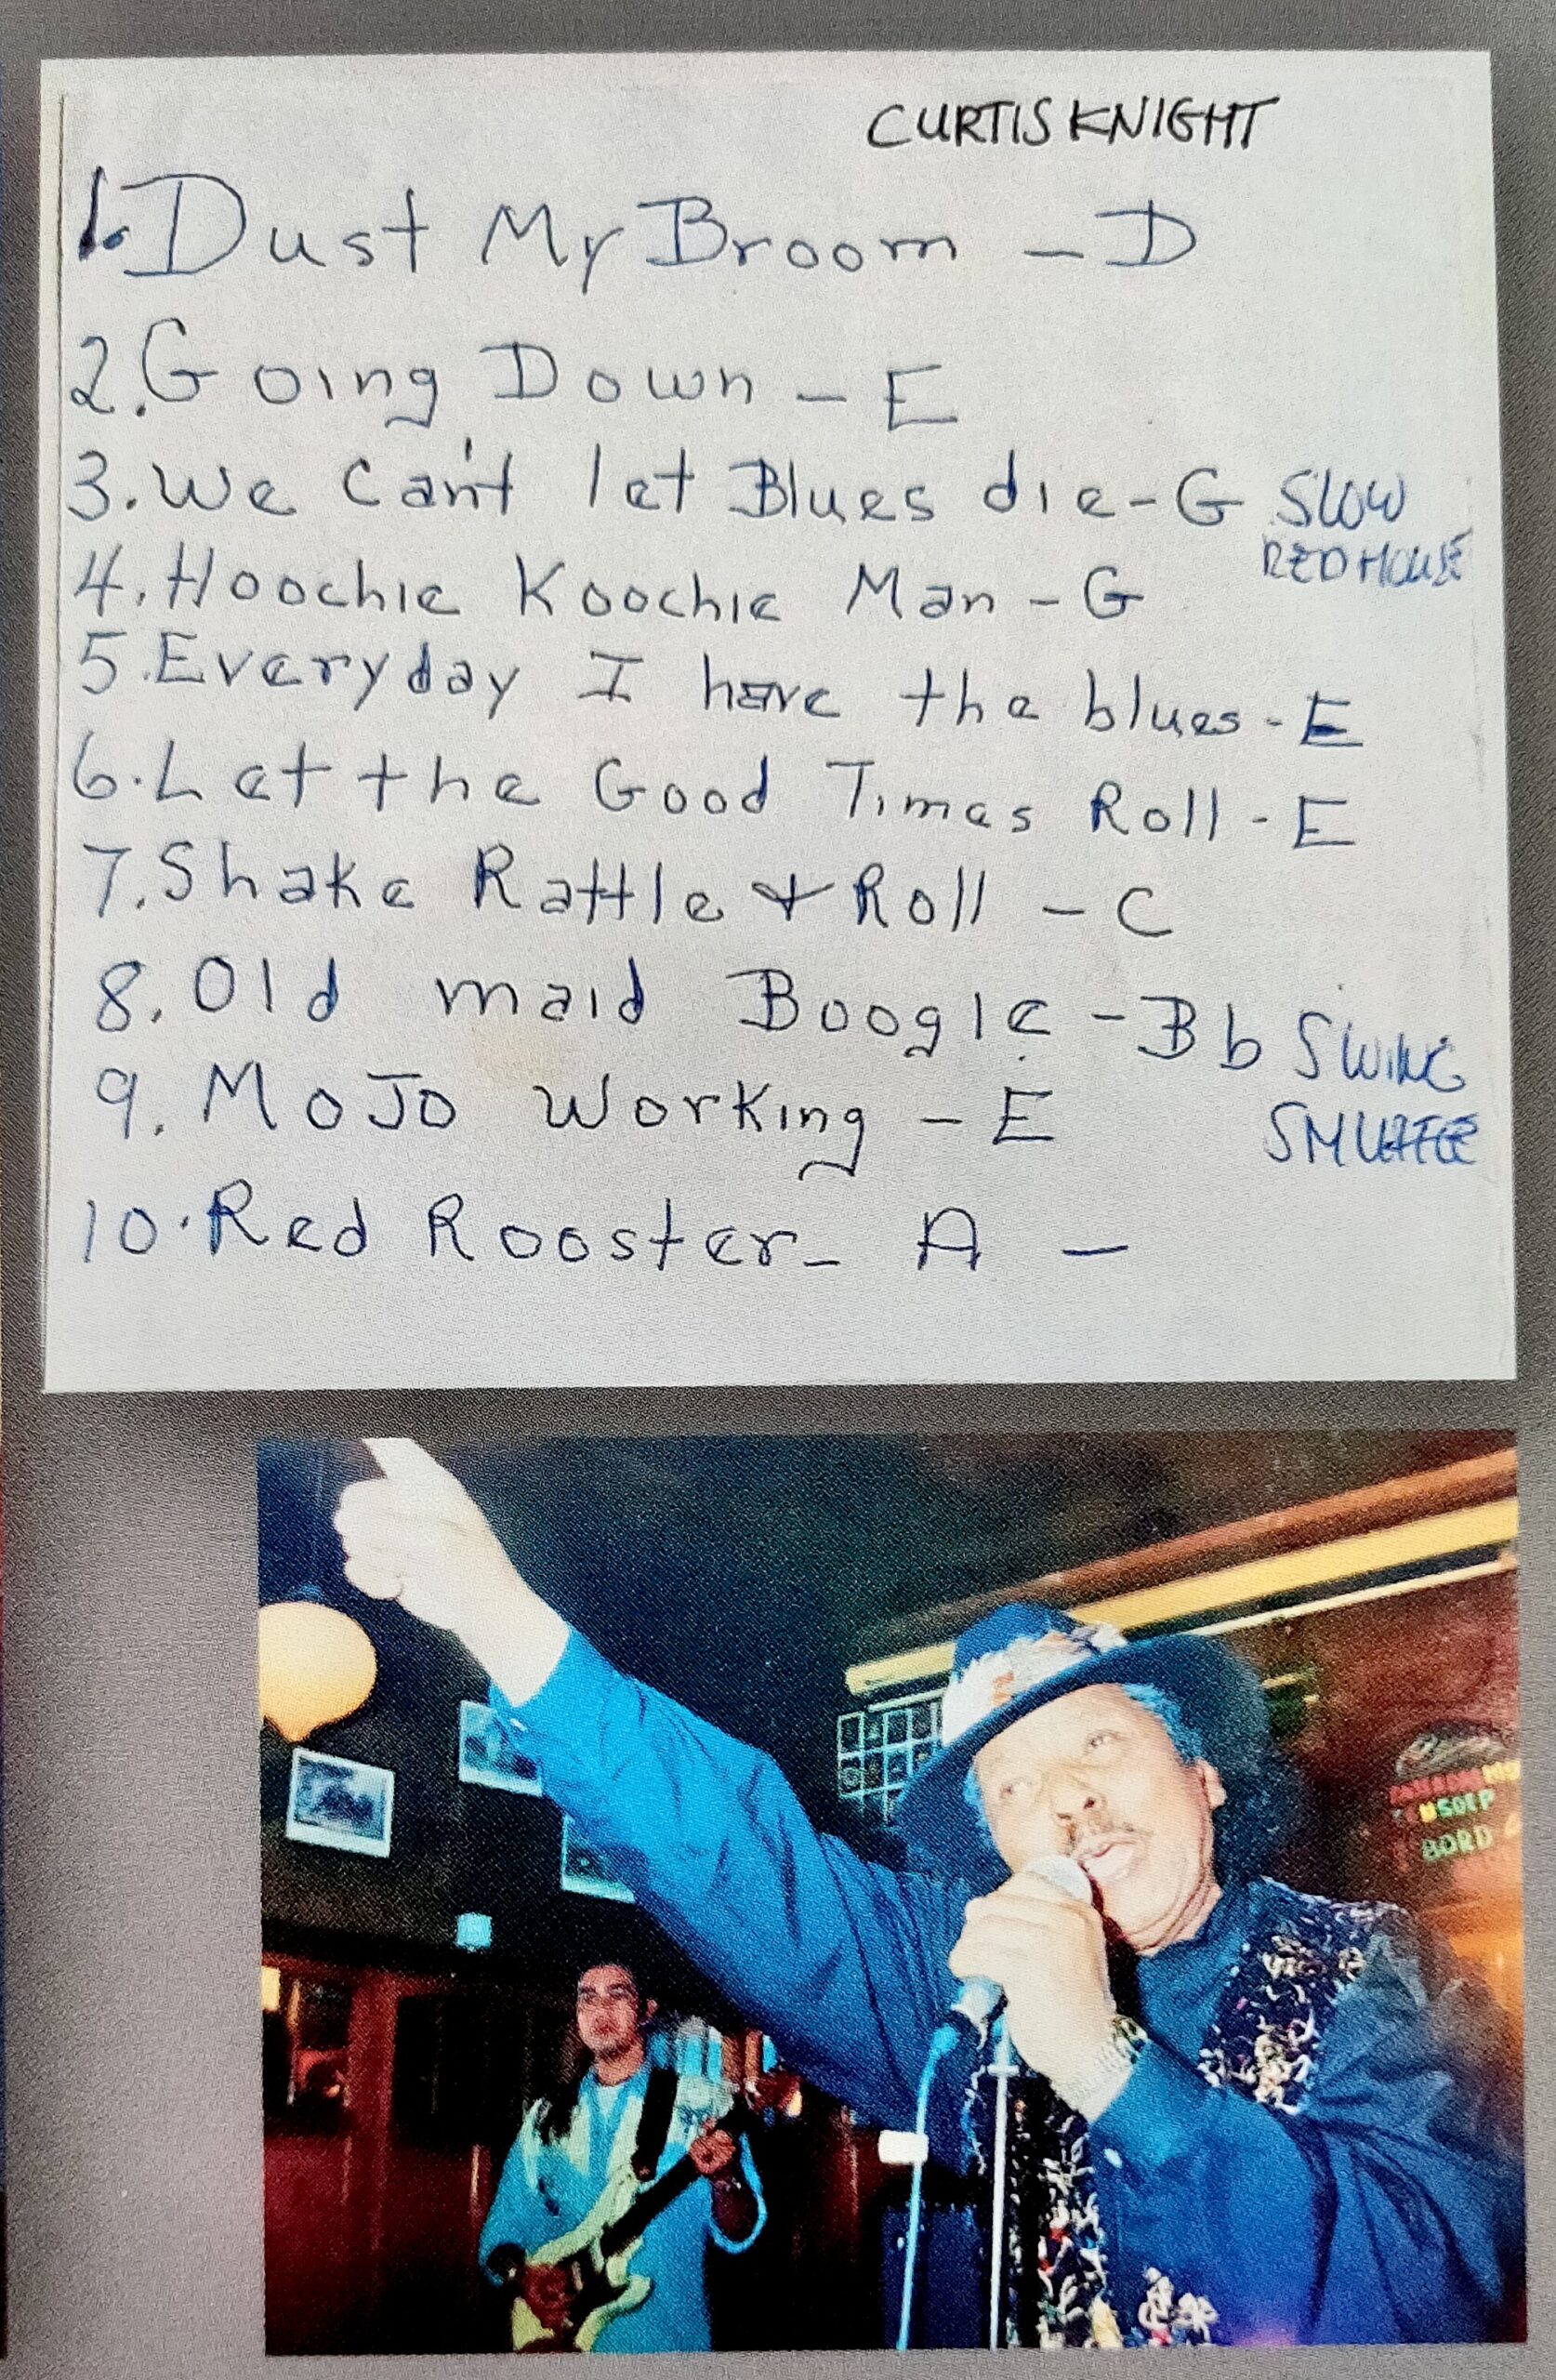 CURTIS KNIGHT
1. Dust My Broom - D
2. Going Down - E
3. We Can't let Blues die - G SLOW
RED HOUSE
4. Hoochie Koochie Man - G
5. Everyday I have the blues - E
6. Let the Good Times Roll - E
7. Shake Rattle & Roll - C
8. Old maid Boogie - Bb SWING
9. MoJo Working - E
10. Red Rooster - A -
BORD